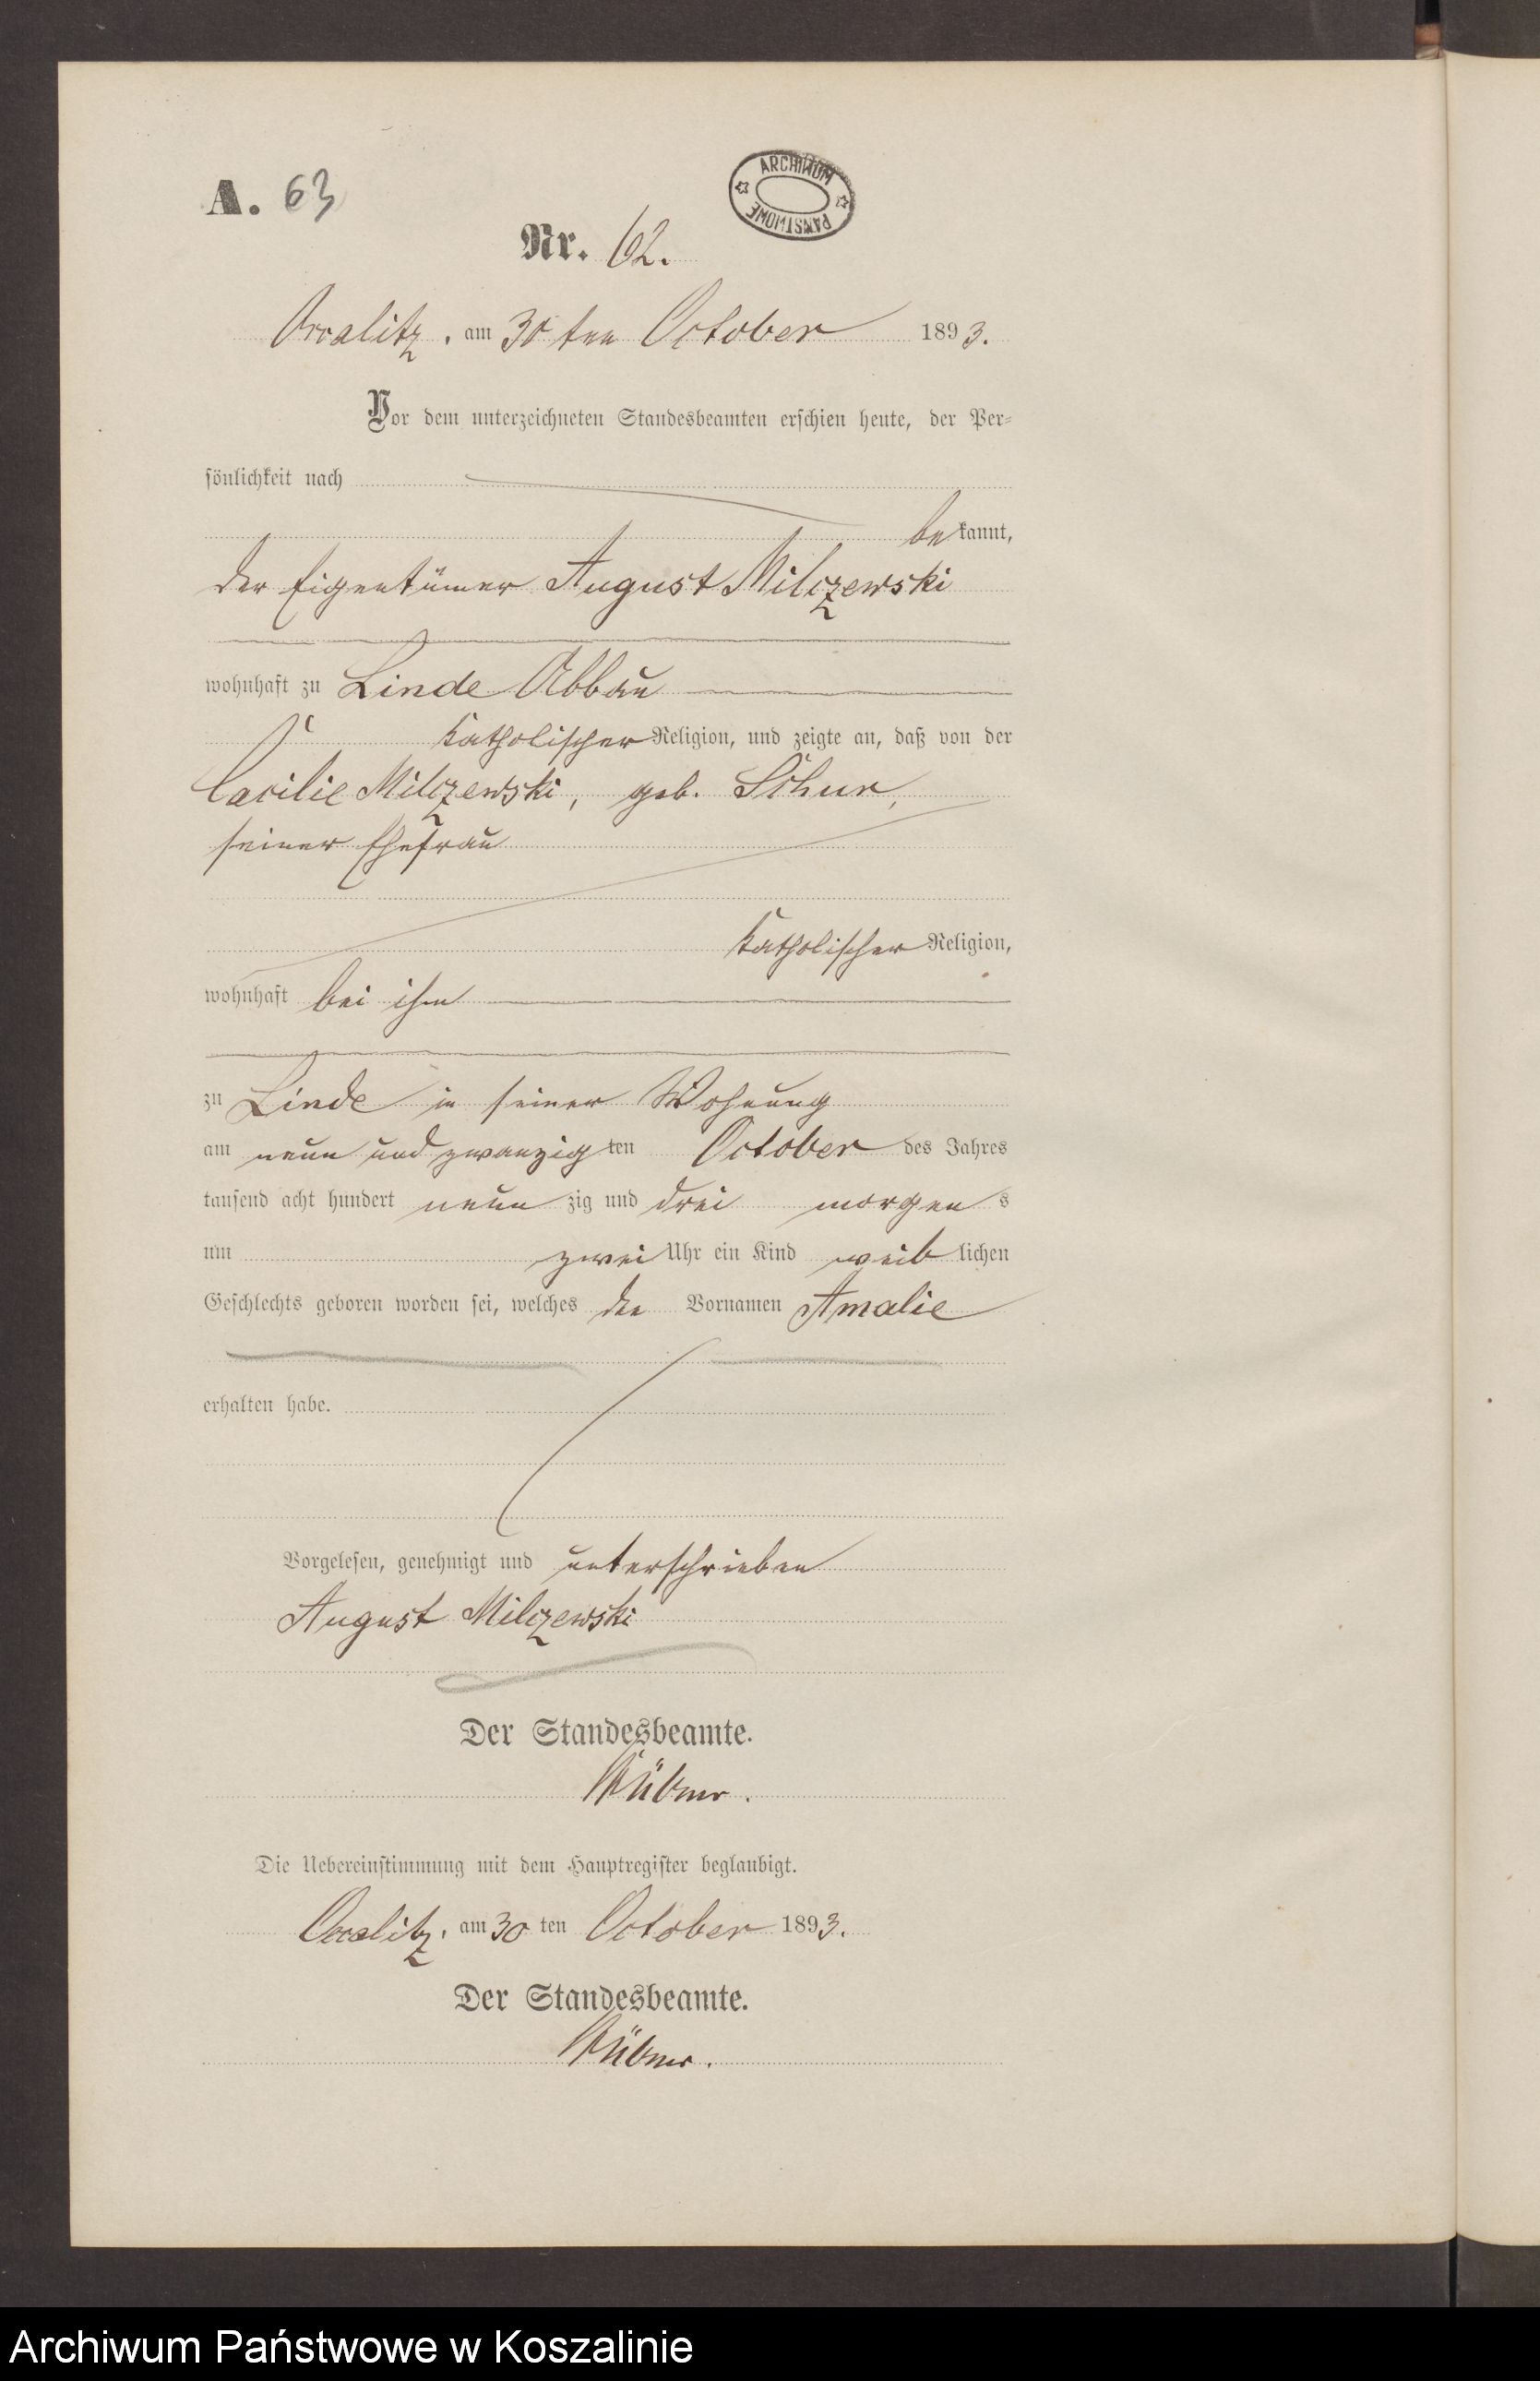 A. 63
ARCHIWUM PAŃSTWOWE
Nr. 62.
am 30 ten October 1893.
Vor dem unterzeichneten Standesbeamten erschien heute, der Per-
sönlichkeit nach
bekannt,
der Eigentümer August Milczewski
wohnhaft zu Linde Abbau
katholischer Religion, und zeigte an, daß von der
Cacilie Milczewski, geb. Schur,
seiner Ehefrau
katholischer Religion,
wohnhaft bei ihm
zu Linde in seiner Wohnung
am neun und zwanzig ten October des Jahres
tausend acht hundert neun zig und drei morgen s
um zwei Uhr ein Kind weib lichen
Geschlechts geboren worden sei, welches den Vornamen Amalie
erhalten habe.
Vorgelesen, genehmigt und unterschrieben
August Milczewski
Der Standesbeamte.
Die Uebereinstimmung mit dem Hauptregister beglaubigt.
am 30 ten October 1893.
Der Standesbeamte.
Archiwum Państwowe w Koszalinie